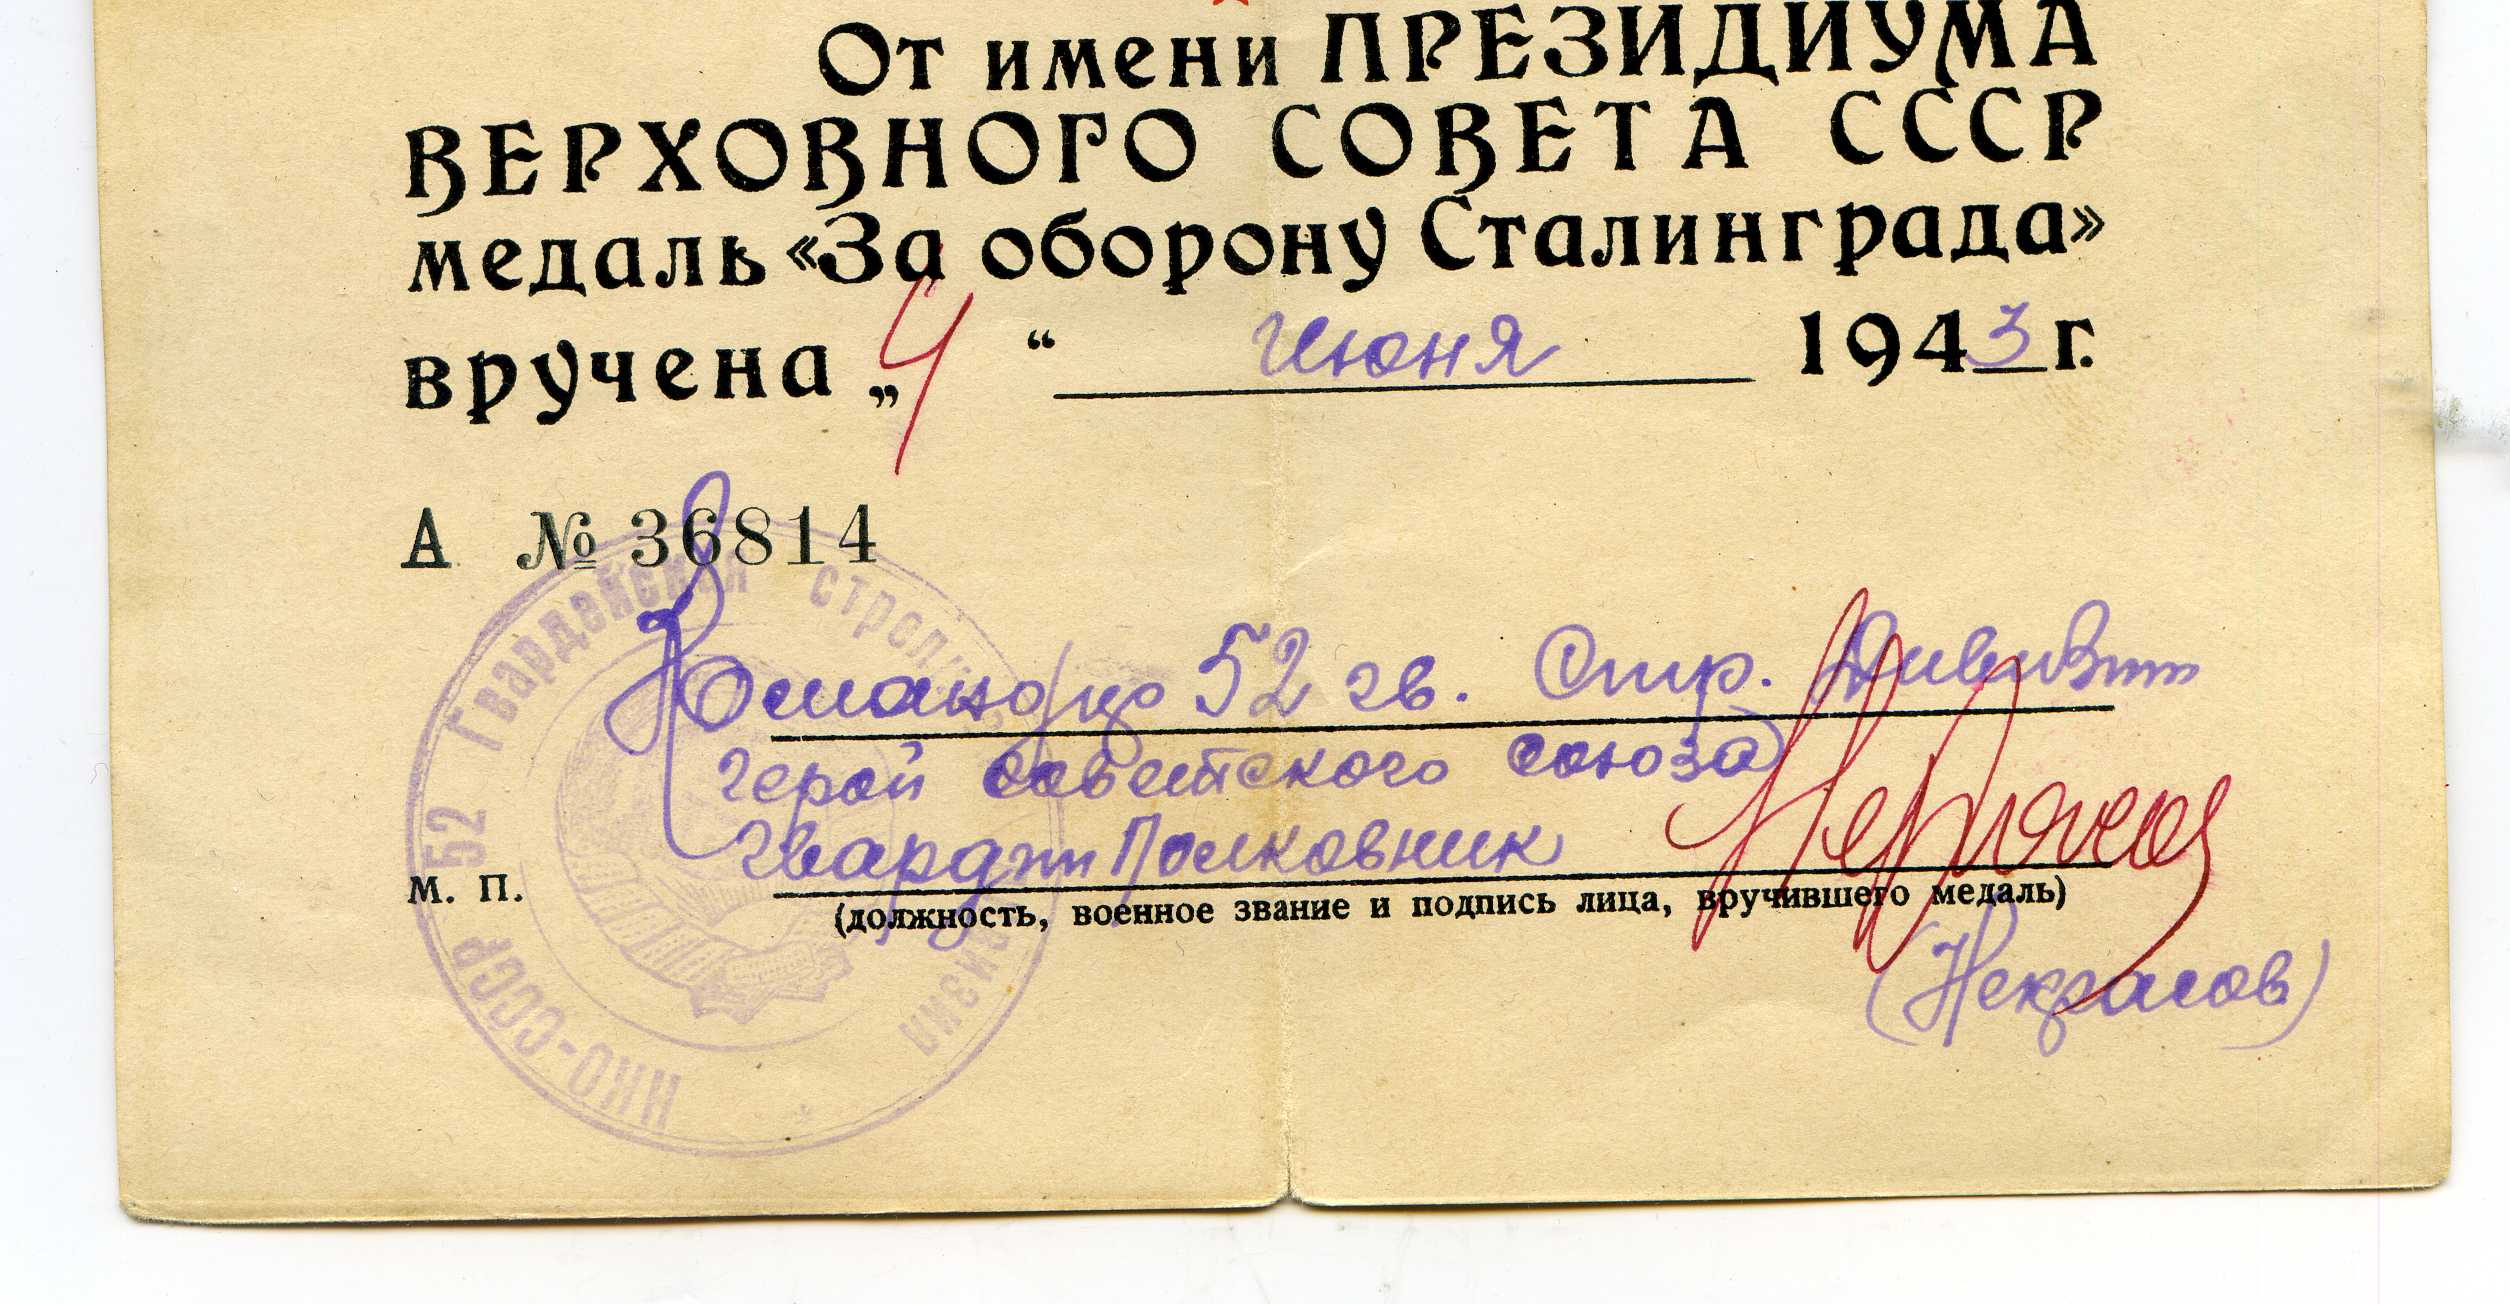 От имени ПРЕЗИДИУМА
ВЕРХОВНОГО СОВЕТА СССР
медаль «За оборону Сталинграда»
вручена „4“ июня 1943 г.
А № 36814
Командир 52 гв. Стр. Дивизии
Герой Советского союза
Гвардии Полковник
(должность, военное звание и подпись лица, вручившего медаль)
М. П.
(Некрасов)
НКО-СССР 52 Гвардейская стрелк дивизия